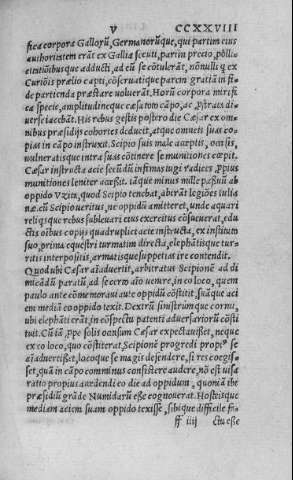 V CCXXVIII
fica corpora Gallorū, Germanorūque, qui partim eius
authoritatem erāt ex Gallia secuti, partim precio, pollici
tationibusque adducti, ad eū se cōtulerāt, nōnulli q ex
Curiōis prælio capti, cōseruatique parem gratiā in fi-
de partienda præstare voluerāt. Horū corpora mirifi
ca specie, amplitudineque cæsa tom cāpo, ac prostrata di-
uerse iacebāt. His rebus gestis postero die Cæsar ex om
nibus præsidijs cohortes deducit, atque omneis suas co-
pias in campo instruxit. Scipio suis male acceptis, occisis,
vulneratisque intra suas cōtinere se munitiones cœpit.
Cæsar instructa acie secūdum infimas iugi radices, propius
munitiones leniter accessit. Iāque minus mille passuū ab
oppido Vzita, quod Scipio tenebat, aberāt legiōes iulia
næ, cū Scipio veritus, ne oppidū amitteret, unde aquari
reliquisque rebus subleuari eius exercitus cōsueuerat, edu
ctis oībus copijs quadruplici acie instructa, ex instituto
suo, prima equestri turmatim directa, elephātisque tur-
ratis interpositis, armatisque suppetias ire contendit.
Quod ubi Cæsar aīaduertit, arbitratus Scipionē ad di
micādū paratū, ad se certo aīo uenire, in eo loco, quem
paulo ante cōmemoraui ante oppidū cōstitit, suāque aci
em mediā eo oppido texit. Dextrū sinistrumque cornu,
ubi elephāti erāt, in cōspectu patenti aduersariorū cōsti
tuit. Cū iā prope solis occasum Cæsar expectauisset, neque
ex eo loco, quo cōstiterat, Scipionē progredi propius se
aīaduertisset, locoque se magis defendere, si res coegis-
set, quā in cāpo comminus consistere audere, nō est uisa
ratio propius accedendi eo die ad oppidum, quoniā ibi
præsidiū grāde Numidarū esse cognouerat. Hostisque
mediam aciem suam oppido texisse, sibique difficile fa-
ff iiij ctu esse